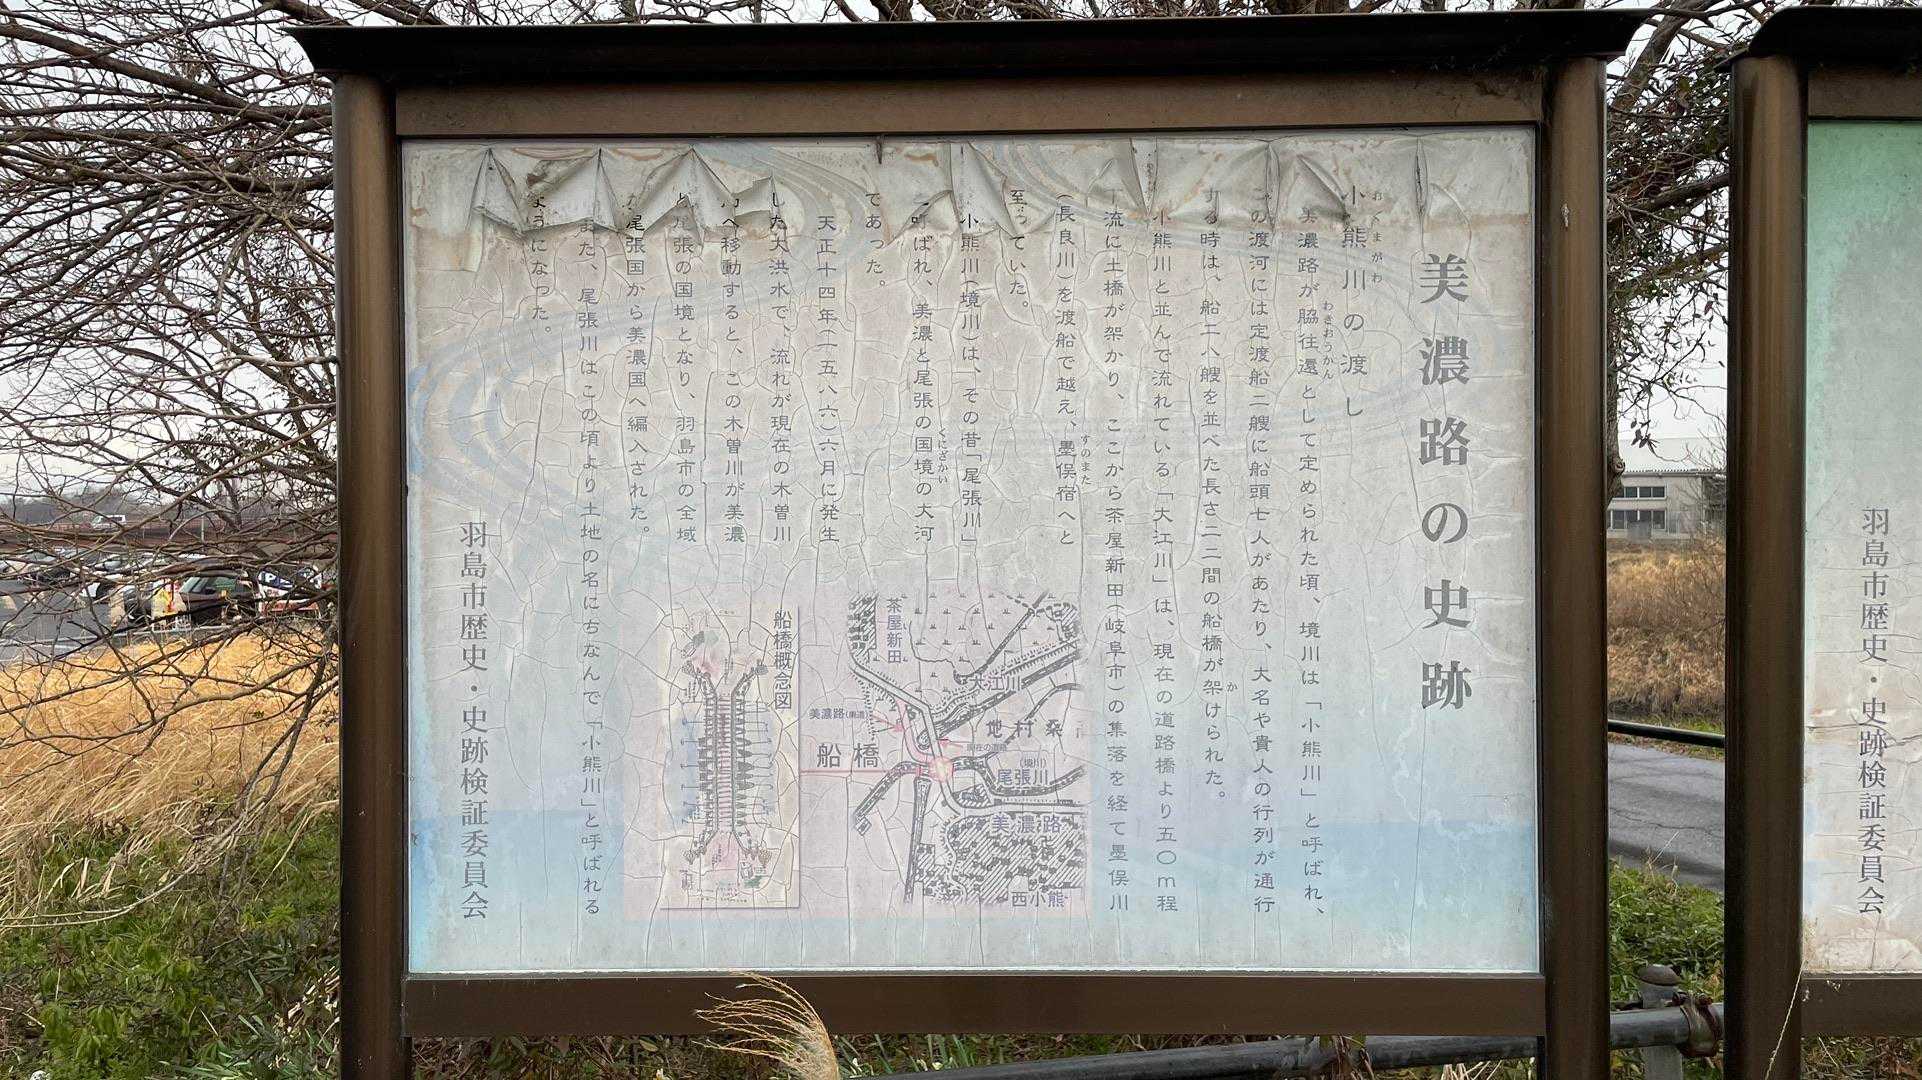 美濃路の史跡
小熊川の渡し
おぐまがわ
美濃路が脇往還として定められた頃、境川は「小熊川」と呼ばれ、
わきおうかん
この渡河には定渡船二艘に船頭七人があたり、大名や貴人の行列が通行
する時は、船二八艘を並べた長さ二二間の船橋が架けられた。
か
小熊川と並んで流れている「大江川」は、現在の道路橋より五〇m程
下流に土橋が架かり、ここから茶屋新田(岐阜市)の集落を経て墨俣川
(長良川)を渡船で越え、墨俣宿へと
すのまた
至っていた。
小熊川(境川)は、その昔「尾張川」
と呼ばれ、美濃と尾張の国境の大河
くにざかい
であった。
天正十四年(一五八六)六月に発生
した大洪水で、流れが現在の木曽川
へ移動すると、この木曽川が美濃
と尾張の国境となり、羽島市の全域
が尾張国から美濃国へ編入された。
また、尾張川はこの頃より土地の名にちなんで「小熊川」と呼ばれる
ようになった。
茶屋新田
大江川
美濃路(廃道)
地村桑
現在の道路
船橋
(境川)
尾張川
美濃路
西小熊
船橋概念図
羽島市歴史・史跡検証委員会
羽島市歴史・史跡検証委員会